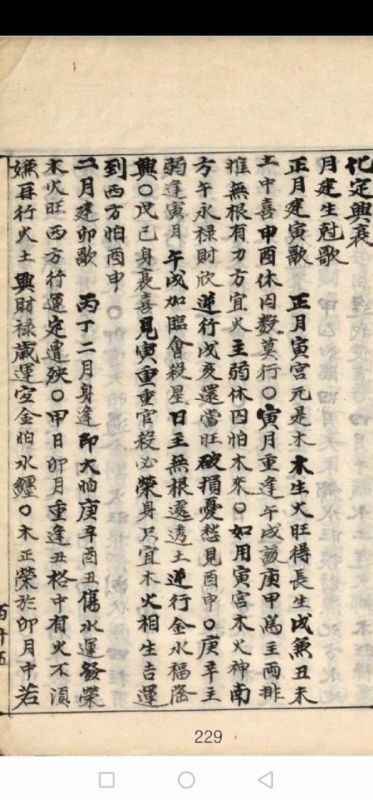 化定興衰
月建生尅歌
正月建寅歌　正月寅宮元是木木生火旺得長生戌兼丑未
土中喜甲申酉休囚数莫行○寅月重逢午戌該庚甲為主兩排
推無根有力方宜火主弱休囚怕木來○如用寅宮木火神南
方午永祿財欣逆行戌亥還當旺破損憂愁見酉申○庚辛主
弱逢寅月午戌加臨會殺星日主無根還透土逆行金水福蔭
興○戊己身衰喜見寅重重官殺必榮身只宜木火相生吉運
到西方怕酉申
二月建卯歌　丙丁二月身逢卯大怕庚辛酉丑傷水運發榮
木火旺西方行運定遭殃○甲日卯月重逢丑格中有火不須
嫌再行火土興財祿歲運空金怕水纏○木正榮於卯月中若
百廿五
229